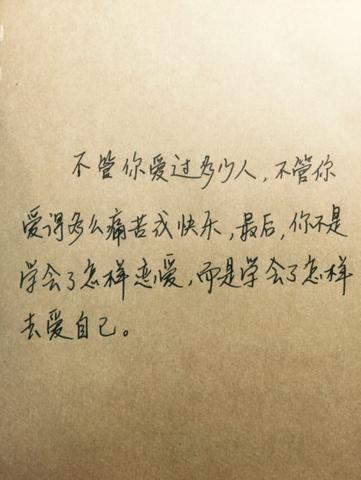 不管你爱过多少人，不管你
爱得多么痛苦或快乐，最后，你不是
学会了怎样恋爱，而是学会了怎样
去爱自己。